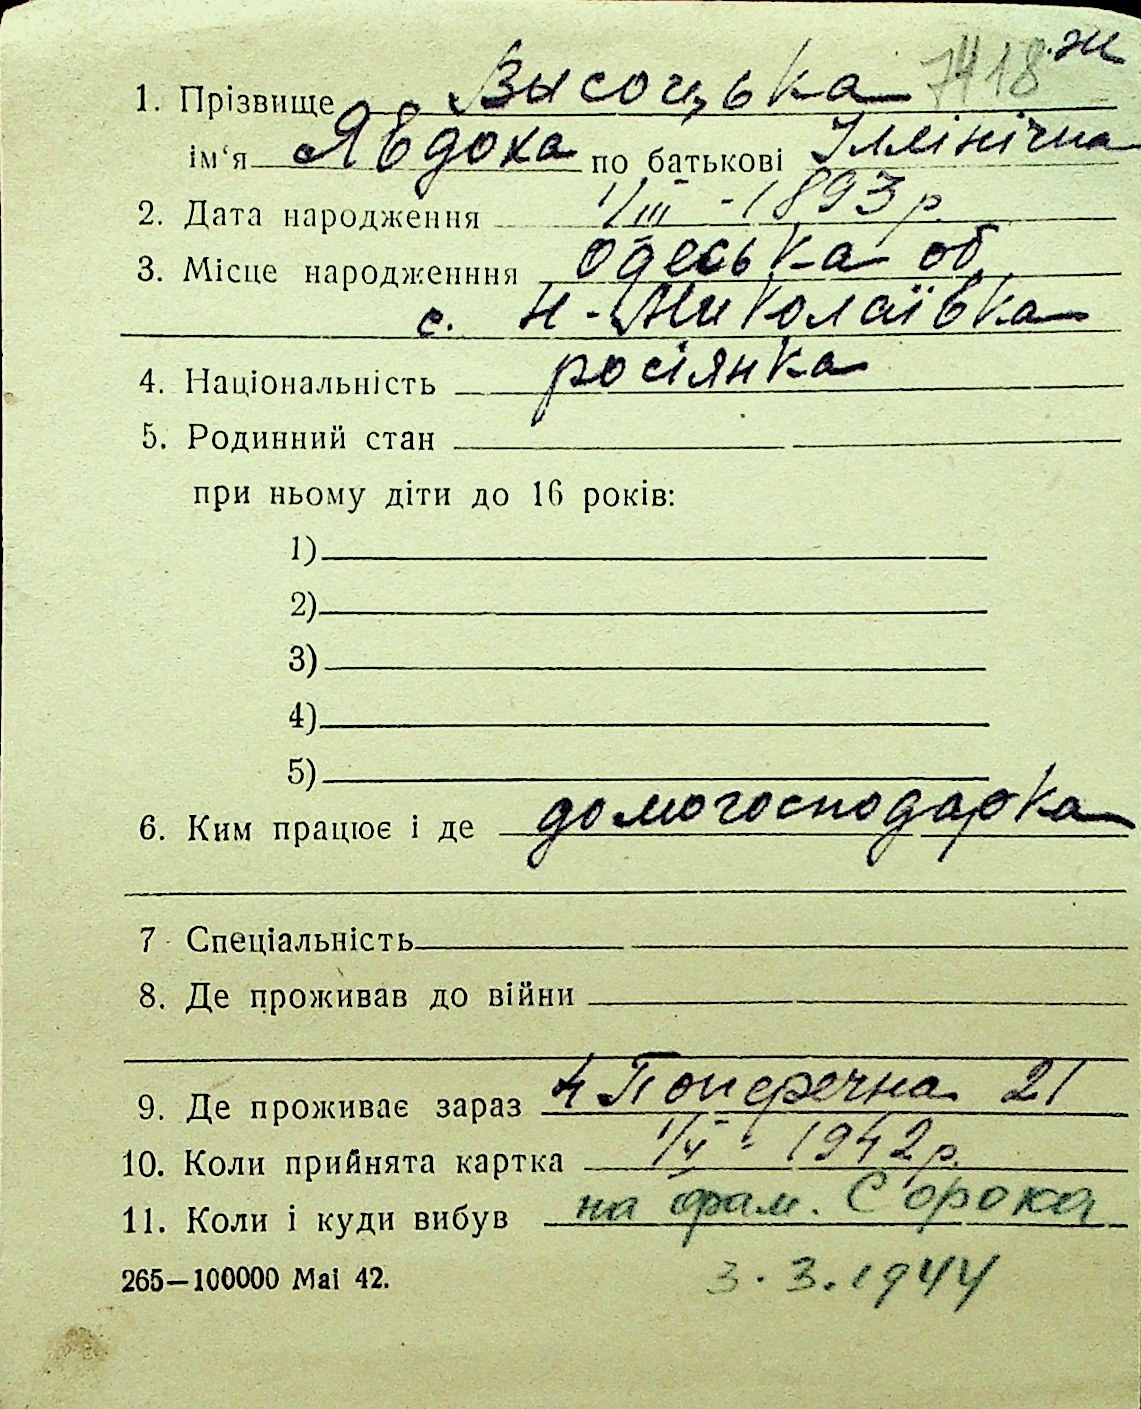 7418 ж
1. Прізвище Высоцька
ім‘я Явдоха по батькові Іллінічна
2. Дата народження 1/III - 1893 р.
3. Місце народженння Одеська об
с. Н-Миколаївка
4. Національність росіянка
5. Родинний стан
при ньому діти до 16 років:
1)
2)
3)
4)
5)
6. Ким працює і де домогосподарка
7 Спеціальність
8. Де проживав до війни
9. Де проживає зараз 4 Поперечна 21
10. Коли прийнята картка 1/V - 1942 р.
11. Коли і куди вибув на фам. Сорока
265—100000 Mai 42. 3.3.1944